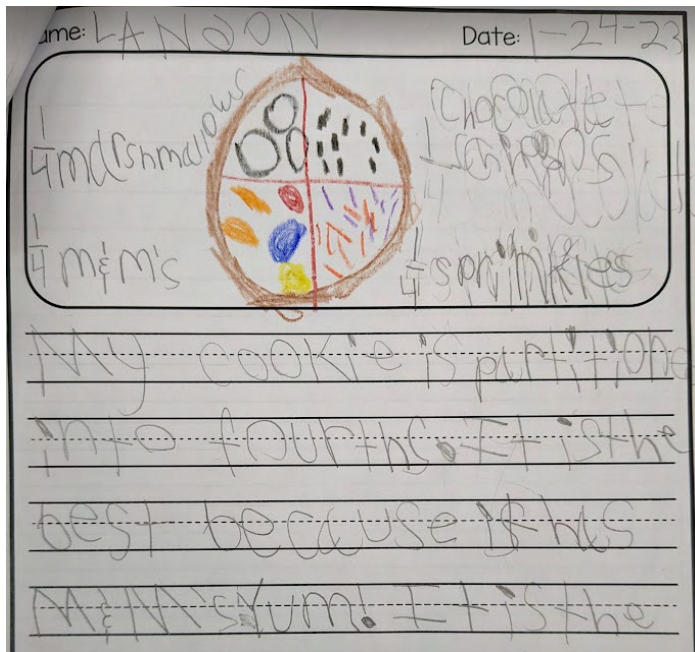 ame: LANDON Date: 1-24-23
1/4 marshmallows
chocolate
1/4
1/4 m&m's
1/4 sprinkles
My cookie is partitione
into fourths. It is the
best because it has
M&M's Yum! It is the